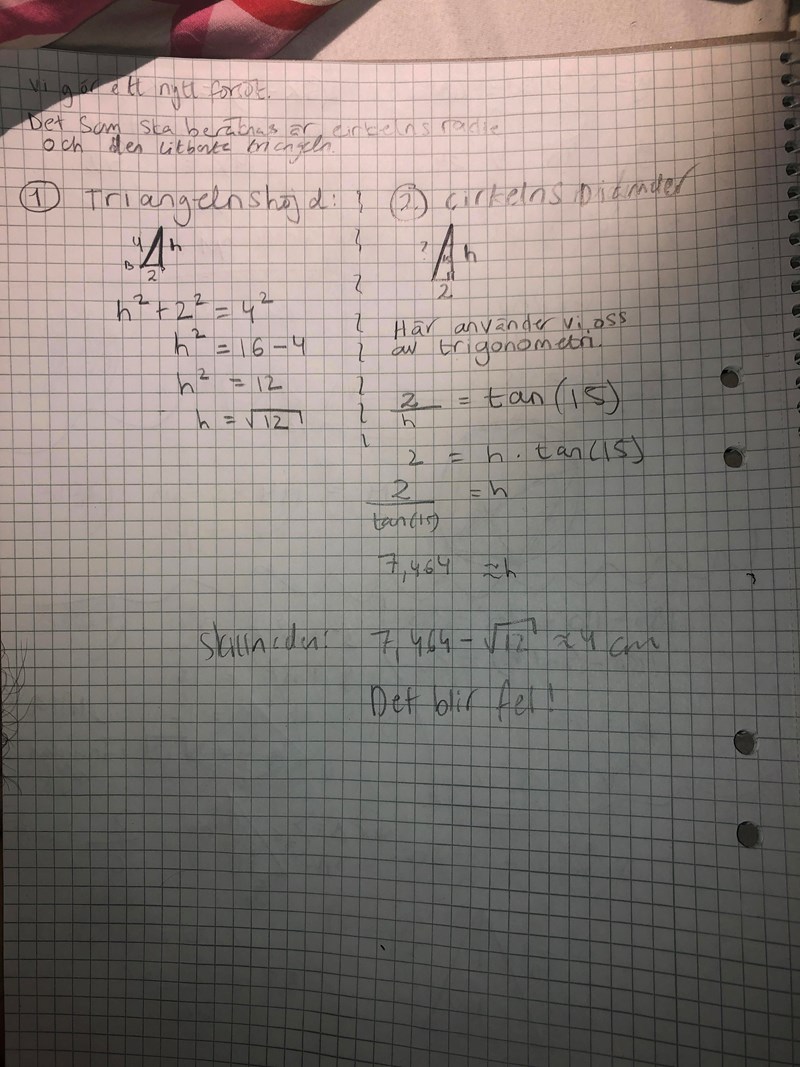 Vi gör ett nytt försöt.
Det Som ska beräknas är cirkelns radie
och den likbenta triangeln.
① Triangelns höjd:
4 h
B 2
h² + 2² = 4²
h² = 16 - 4
h² = 12
h = √12
②.) Cirkelns
? h
2
Här använder vi oss
av trigonometri.
2/h = tan(15)
2 = h · tan(15)
2/tan(15) = h
7,464 ≈ h
Skillnaden: 7,464 - √12 ≈ 4 cm
Det blir fel!